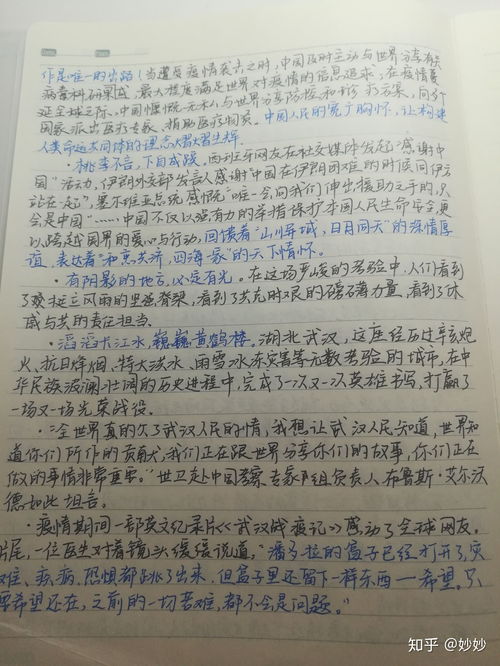 作是唯一的出路！当遭受疫情袭击之时，中国及时主动与世界分享有关
病毒科研成果，最大程度满足世界对疫情的信息追求，在疫情蔓
延全球之际，中国慷慨无私与世界分享防控和诊疗方案，向外
国家派出医疗专家、捐助医疗物资。中国人民的宽广胸怀，让构建
人类命运共同体的理念熠熠生辉。
·桃李不言，下自成蹊。西班牙网友在社交媒体发起"感谢中
国"活动，伊朗外交部发言人感谢"中国在伊朗困难的时候同伊方
站在一起"，塞尔维亚总统感慨"唯一会向我们伸出援助之手的，只
会是中国"……中国不仅以强有力的举措保护本国人民生命安全，更
以跨越国界的爱心与行动，回馈着"山川异域，日月同天"的深情厚
谊，表达着"和衷共济、四海一家"的天下情怀。
·有阴影的地方，必定有光。在这场严峻的考验中，人们看到
了挺立风雨的坚强脊梁，看到了共克时艰的磅礴力量，看到了休
戚与共的责任担当。
·滔滔长江水，巍巍黄鹤楼，湖北武汉，这座经历过辛亥炮
火、抗日烽烟、特大洪水、雨雪冰冻灾害等无数考验的城市，在中
华民族波澜壮阔的历史进程中，完成了一次又一次英雄书写，打赢了
一场又一场光荣战役。
·"全世界真的欠了武汉人民的情，我想让武汉人民知道，世界知
道你们所作的贡献，我们正在跟世界分享你们的故事，你们正在
做的事情非常重要。"世卫赴中国考察专家组负责人布鲁斯·艾尔沃
德如此坦言。
·疫情期间一部英文纪录片《武汉战疫记》感动了全球网友。
片尾，一位医生对着镜头缓缓说道，"潘多拉的盒子已经打开了，灾
难、疾病、恐惧都跳了出来，但盒子里还留下一样东西——希望。只
要希望还在，之前的一切苦难，都不会是问题。"
知乎 @妙妙